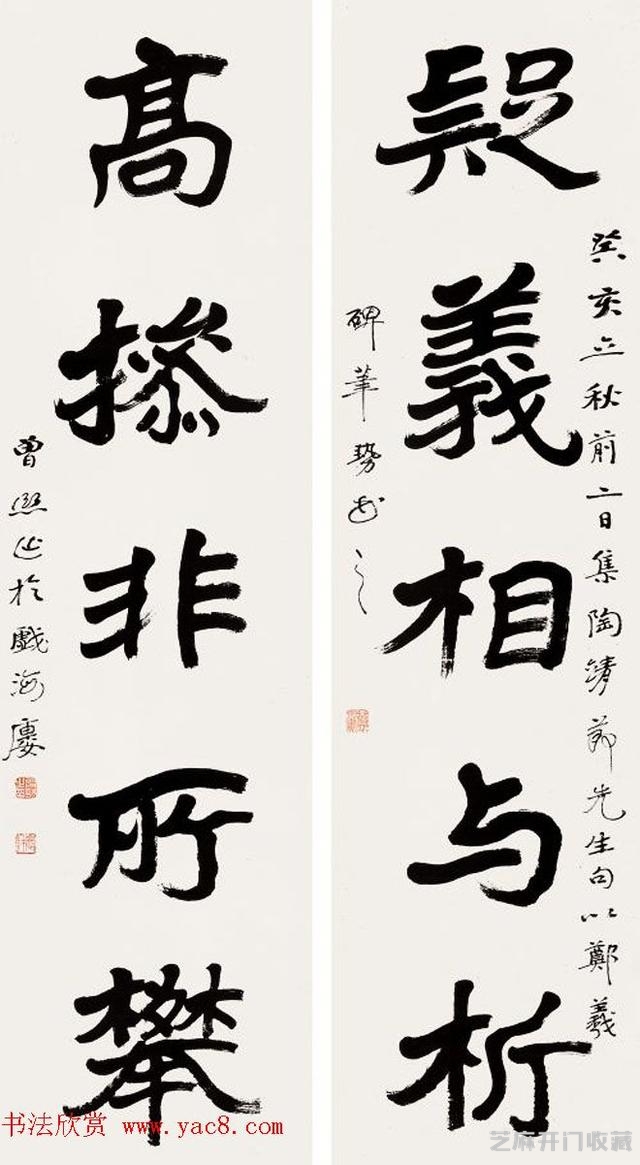 疑義相与析
癸亥立秋前二日集陶靖節先生句以鄭羲
碑筆勢為之
高摻非所攀
曾熙作於戲海廔
书法欣赏 www.yac8.com
芝麻开门收藏